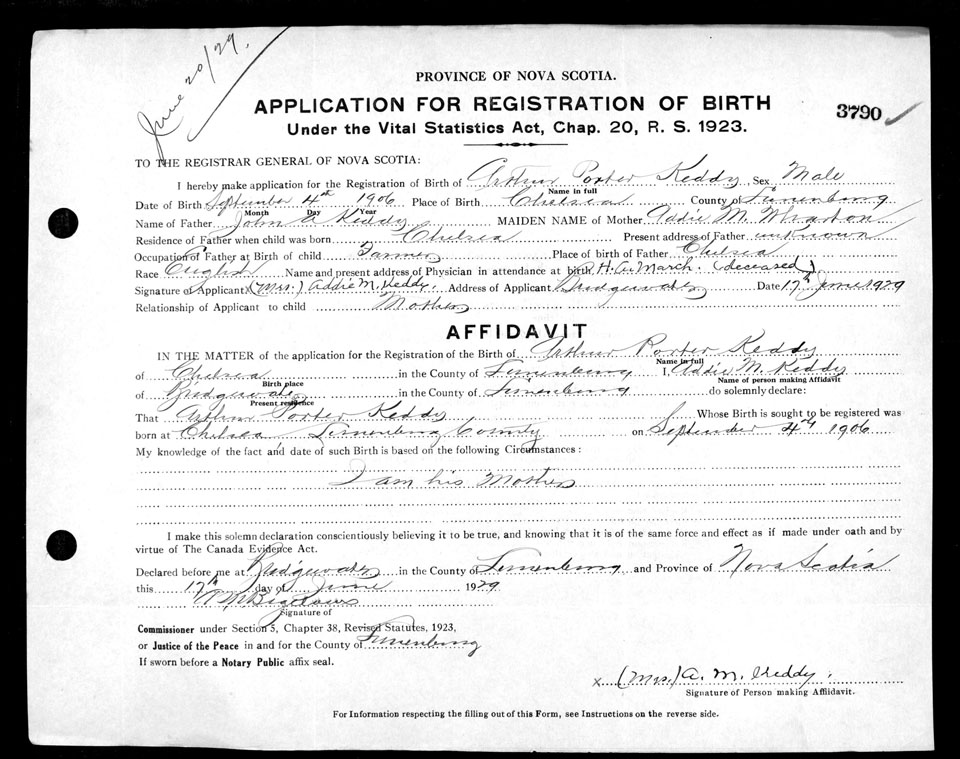 June 20/29.
PROVINCE OF NOVA SCOTIA.
APPLICATION FOR REGISTRATION OF BIRTH
3790
Under the Vital Statistics Act, Chap. 20, R. S. 1923.
TO THE REGISTRAR GENERAL OF NOVA SCOTIA:
I hereby make application for the Registration of Birth of Arthur Porter Keddy Sex Male
Name in full
Date of Birth September 4th 1906 Place of Birth Chelsea County of Lunenburg
Month Day Year
Name of Father John A Keddy MAIDEN NAME of Mother Addie M. Wharton
Residence of Father when child was born Chelsea Present address of Father unknown
Occupation of Father at Birth of child Farmer Place of birth of Father Chelsea
Race English Name and present address of Physician in attendance at birth H. A. March. (deceased)
Signature of Applicant x (Mrs.) Addie M. Keddy. Address of Applicant Bridgewater Date 17th June 1929
Relationship of Applicant to child Mother
AFFIDAVIT
IN THE MATTER of the application for the Registration of the Birth of Arthur Porter Keddy
Name in full
of Chelsea in the County of Lunenburg I, Addie M. Keddy
Birth place Name of person making Affidavit
of Bridgewater in the County of Lunenburg do solemnly declare:
Present residence
That Arthur Porter Keddy Whose Birth is sought to be registered was
born at Chelsea Lunenburg County on September 4th 1906
My knowledge of the fact and date of such Birth is based on the following Circumstances:
I am his Mother
I make this solemn declaration conscientiously believing it to be true, and knowing that it is of the same force and effect as if made under oath and by
virtue of The Canada Evidence Act.
Declared before me at Bridgewater in the County of Lunenburg and Province of Nova Scotia
this 17th day of June 1929
Signature of
Commissioner under Section 5, Chapter 38, Revised Statutes, 1923,
or Justice of the Peace in and for the County of Lunenburg
If sworn before a Notary Public affix seal.
x (Mrs.) A. M. Keddy.
Signature of Person making Affidavit.
For Information respecting the filling out of this Form, see Instructions on the reverse side.